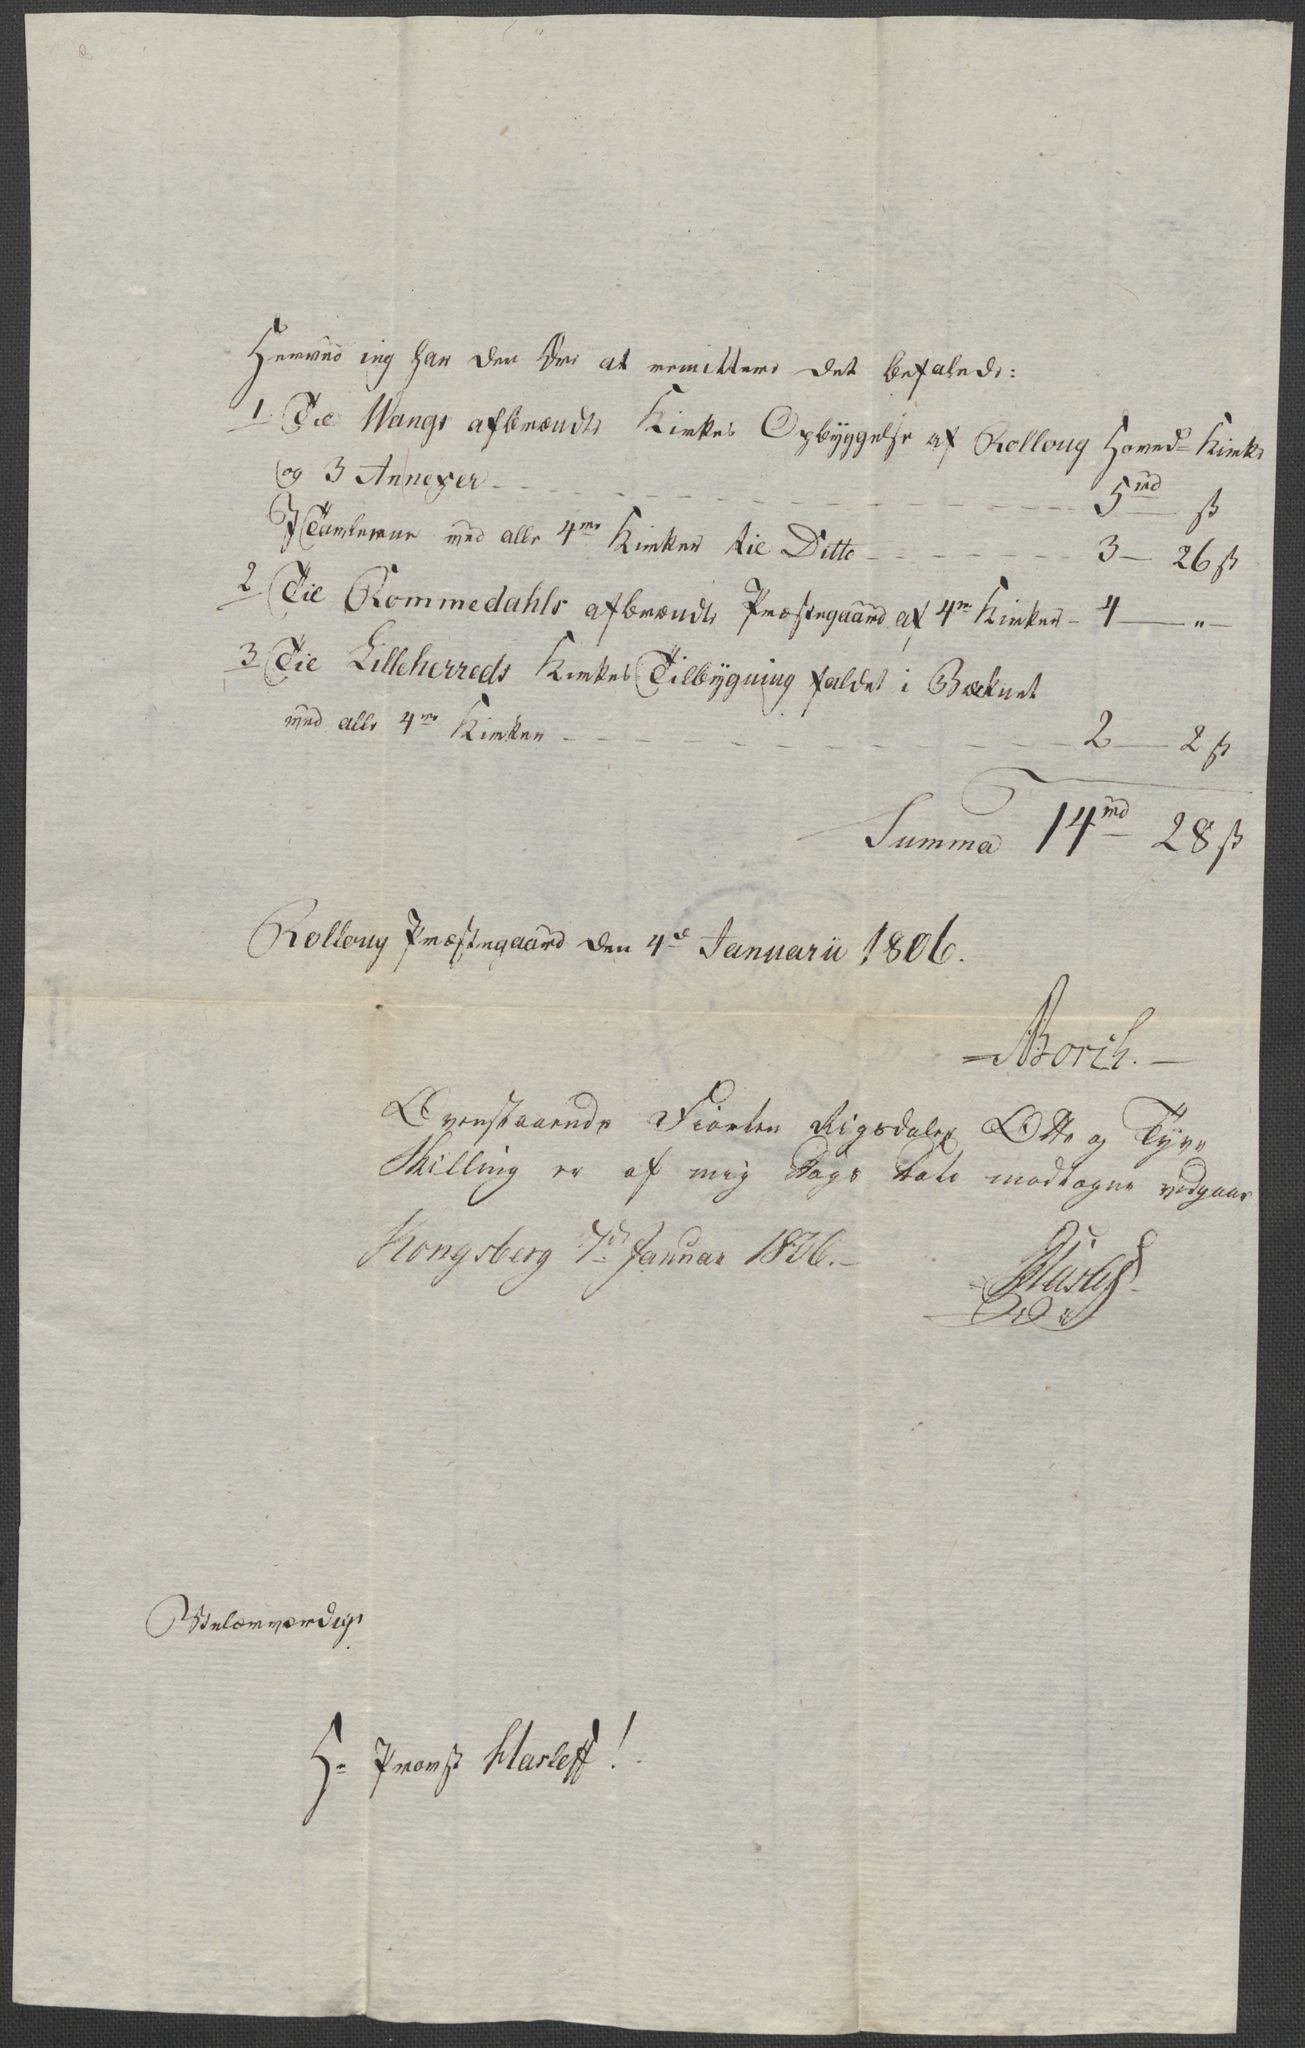 Herved jeg har den Ære at remittere det befalede:
1 Til Wangs afbrændte Kirkes Opbyggelse af Rolloug Hoved=Kirke
og 3 Annexer - - - 5 rd ß
I Tavlerne ved alle 4re Kirker til Ditto - - - 3 — 26 ß
2 Til Rommedahls afbrændte Præstegaard af 4re Kirker - 4 — "
3 Til Lilleherreds Kirkes Tilbygning faldet i Bæknet
ved alle 4re Kirker - - - 2 — 2 ß
Summa 14 rd 28 ß
Rolloug Præstegaard den 4de Januarii 1806.
Borch.
Ovenstaaende Fiorten Rigsdaler Otte og Tyve
Skilling er af mig Dags Dato modtagne vedgaar
Kongsberg 7de Januar 1806.
Vielærværdige
Hr Provst Harleff!